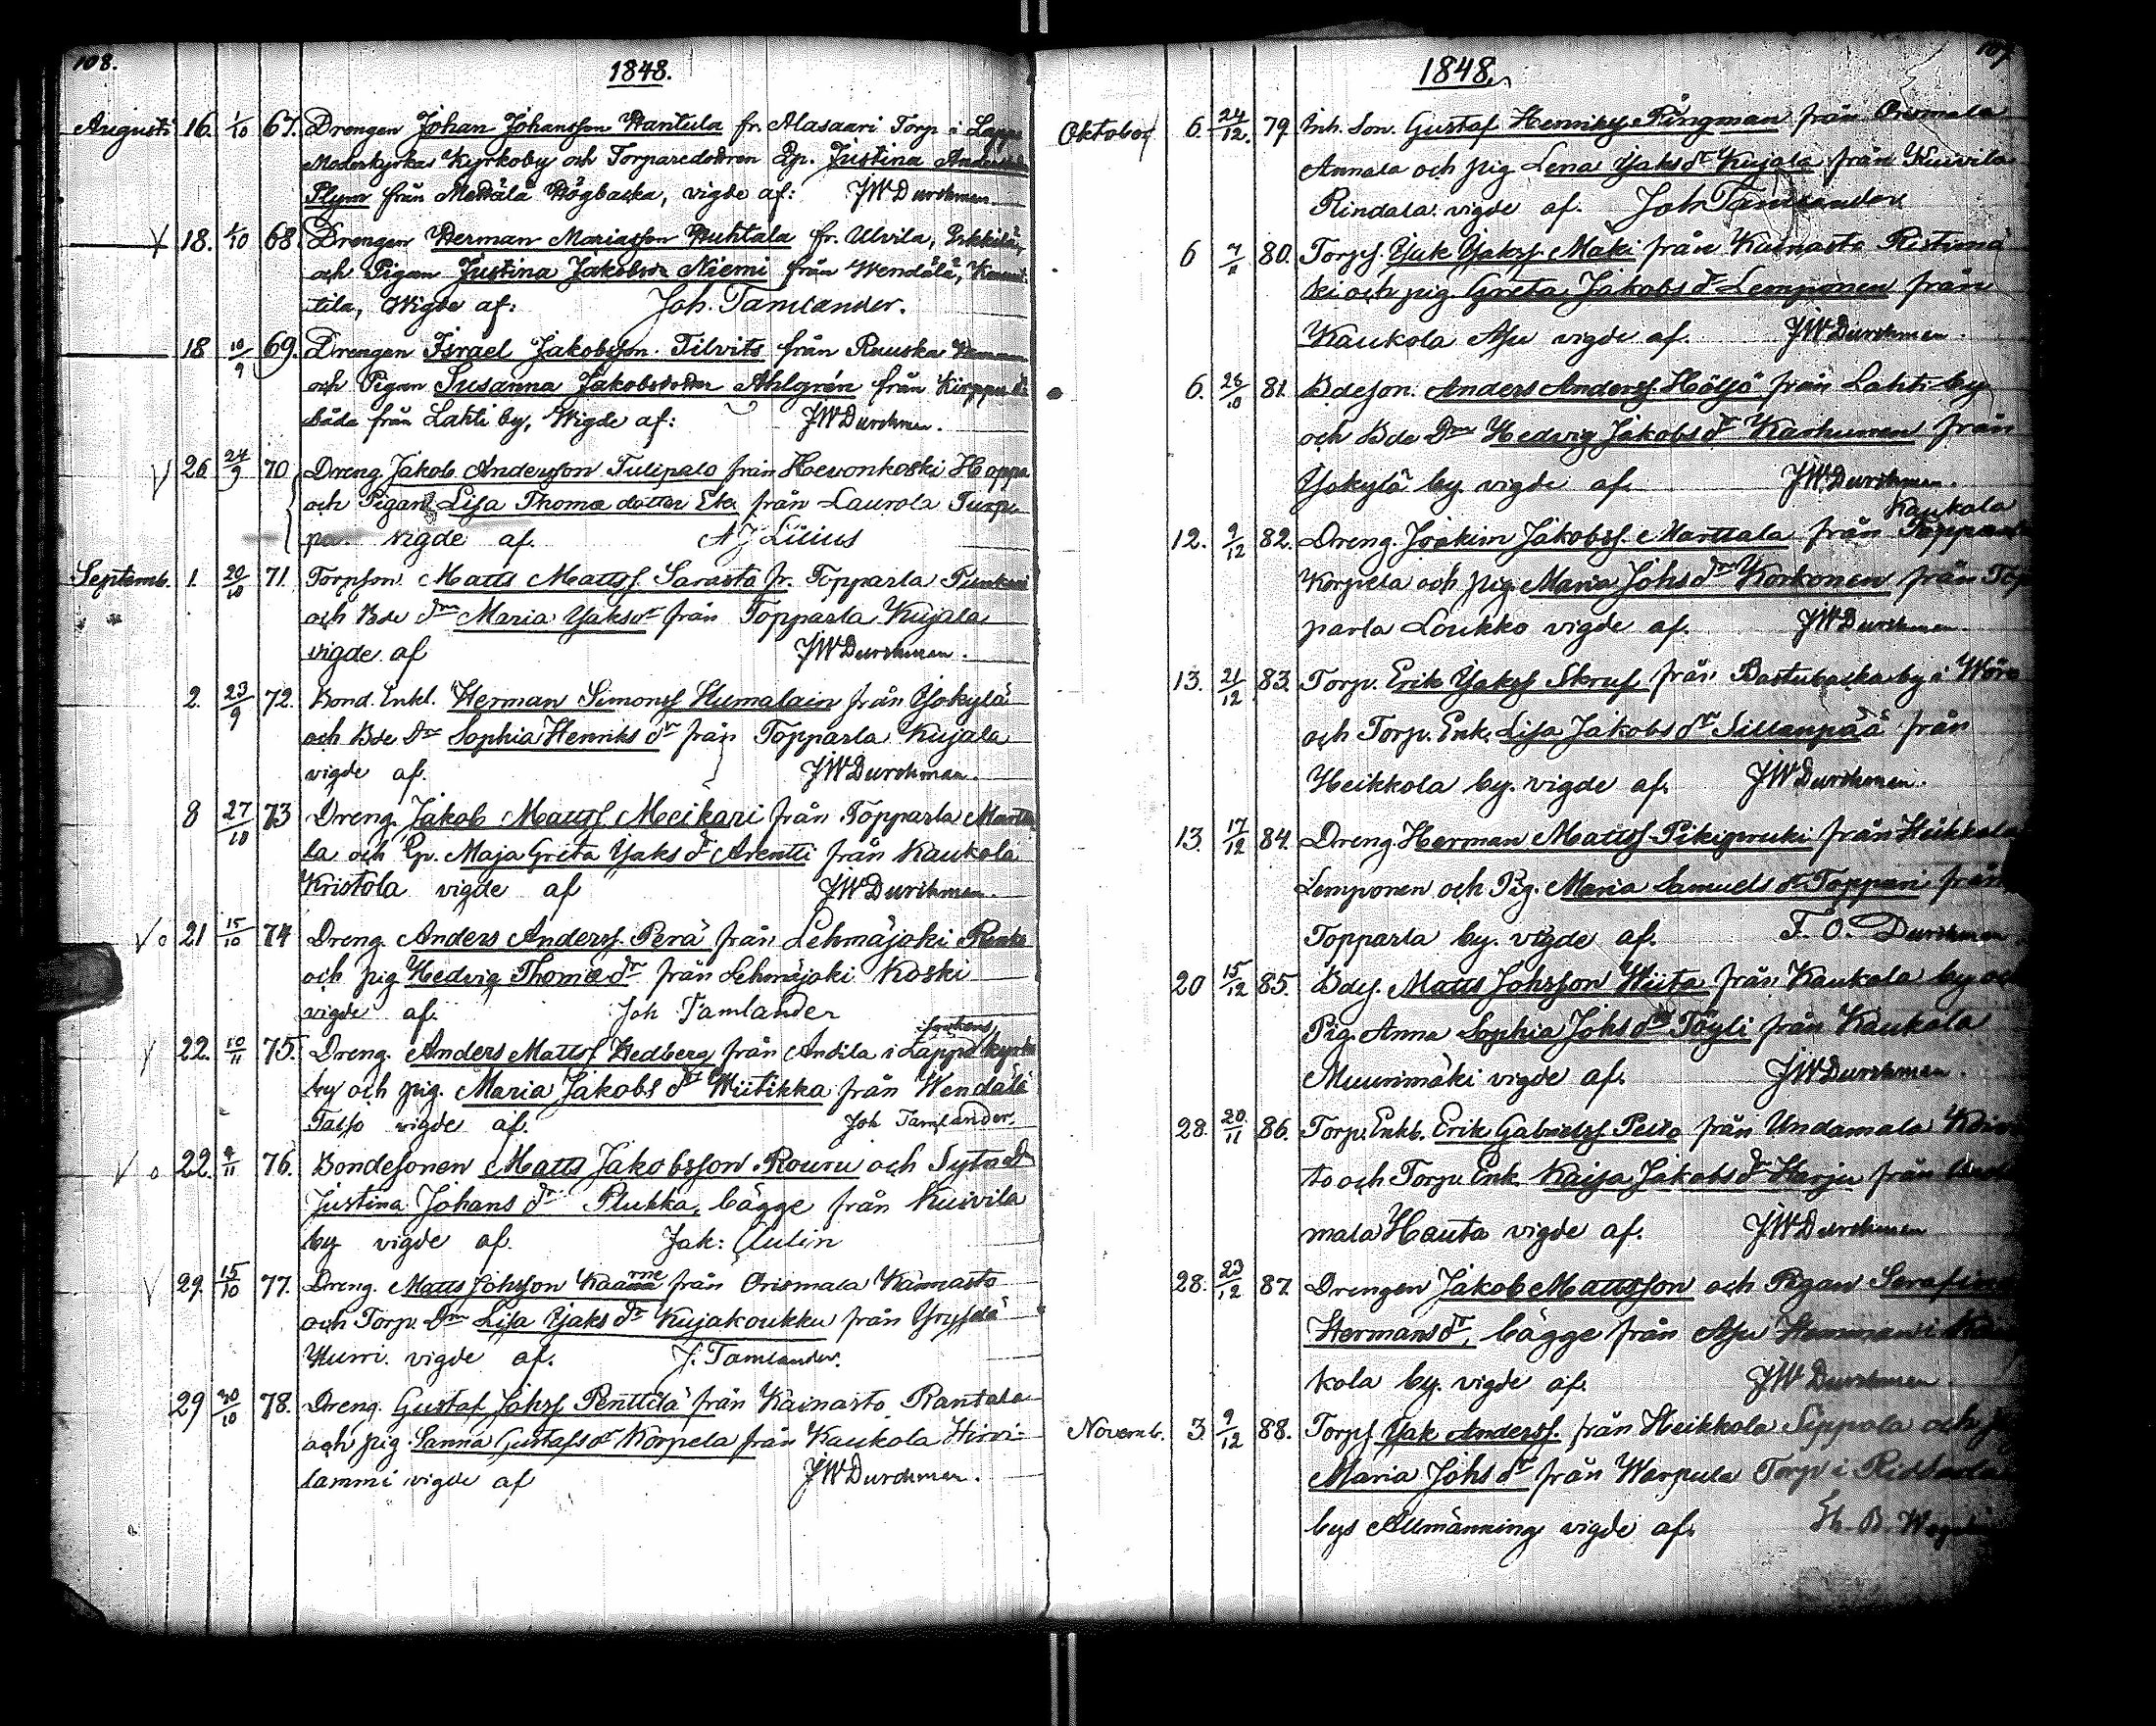 108.
1848.
Augusti 16. 1/10 67. Drengen Johan Johansson Wantula fr. Alasaari Torp i Lappo
Moderkyrkas Kyrkoby och Torparedottren Qp. Justina Anders
Plym från Mettälä Högbacka, vigde af: JW Durchman
18. 1/10 68. Drengen Herman Mariasson Huhtala fr. Ulvila, Erkkilä,
och Pigan Justina Jakobsdr Niemi från Wendälä,
tila, Wigde af: Joh. Tamlander.
18 10/9 69. Drengen Israel Jakobsson Tilvits från Rauska
och Pigan Susanna Jakobsdotter Ahlgrén från
båda från Lahti by, Wigde af: JW Durchman.
26 24/9 70. Dreng Jakob Andersson Tulipalo från Hevonkoski Hoppa
och Pigan Lisa Thomæ dotter Eka från Laurola Turpu
pu. vigde af. A J Lilius
Septemb. 1. 20/10 71. Torpson. Matts Mattsf. Sarasto fr. Topparla
och Bde dr Maria Yaksdr från Topparla Kujala
vigde af JW Durchman.
2. 23/9 72. Bond. Enkl. Herman Simonsf Humalain från Yokylä
och Bde Dr Sophia Henriks dr från Topparla Kujala
vigde af. JW Durchman.
8 27/10 73 Dreng. Jakob Mattsf. Meikari från Topparla Martta
la och Qp. Maja Greta Yaks dr Arentti från Kaukola
Kristola vigde af JW Durchman.
21 15/10 74 Dreng. Anders Andersf. Perä från Lehmäjoki
och pig Hedvig Thomæ dr från Lehmäjoki Koski
vigde af. Joh Tamlander
22. 10/11 75. Dreng. Anders Mattsf Hedberg från Andila i Lappo sockens kyrko
by och pig. Maria Jakobs dr Wiitikka från Wendälä
Talso vigde af. Joh Tamlander.
22. 9/11 76. Bondesonen Matts Jakobsson Rouru och Sytn Dr
Justina Johans dr Plukka, bägge från Kuivila
by vigde af. Jak: Aulin
29. 15/10 77. Dreng. Matts Johsson Kaarne från Orismala Kainasto
och Torp. Dr Lisa Yaks dr Kujakoukku från
Hurri. vigde af. J. Tamlander.
29 30/10 78. Dreng. Gustaf Johsf Penttilä från Kainasto Rantala
och pig. Sanna Gustafsdr Korpela från Kaukola Hirvi-
lammi vigde af JW Durchman.
1848.
Oktober 6. 24/12. 79 Inh. Son. Gustaf Henriksf. Ringman från Orismala
Annala och pig Lena Yaks dr Kujala från Kuivila
Rindala. vigde af. Joh Tamlander
6 7/11 80. Torpf. Yak Yaksf. Mäki från Kainasto Ristimä
ki och pig. Greta Jakobs dr Lemponen från
Kaukola Asu vigde af. JW Durchman.
6. 26/10 81. Bdeson. Anders Andersf. Höljö från Lahti by
och Bde Dr Hedvig Jakobs dr Karhunen från
Yokylä by. vigde af. JW Durchman.
12. 9/12 82. Dreng. Joakim Jakobsf. Marttala från Kaukola
Korpela och pig. Maria Johs dr Korkonen från Top
parla Loukko vigde af. JW Durchman
13. 21/12 83. Torp. Erik Yaksf Skruf från Bastubacka by i Wörå
och Torp. Enk. Lisa Jakobs dr Sillanpää från
Heikkola by. vigde af. JW Durchman.
13. 17/12 84. Dreng. Herman Mattsf. Pikipruki från Heikkola
Lemponen och Pig. Maria Samuels dr Toppari från
Topparla by. vigde af. F. O. Durchman
20 15/12 85. Bdef. Matts Johsson Wiita från Kaukola by och
Pig. Anna Sophia Johs dr Töyli från Kaukola
Muurimäki vigde af. JW Durchman.
28. 20/11 86. Torp. Enkl. Erik Gabrielsf. Peito från Undamala
to och Torp. Enk. Kaisa Jakobs dr Harju från
mala Hauta vigde af. JW Durchman
28. 23/12 87. Drengen Jakob Mattsson och Pigan Serafina
Hermans dr, bägge från Asu Hemman i Kau
kola by. vigde af. JW Durchman
Novemb. 3 9/12 88. Torpf Yak Andersf. från Heikkola Sippola och
Maria Johs dr från Warpula Torp i
bys Allmänning vigde af.